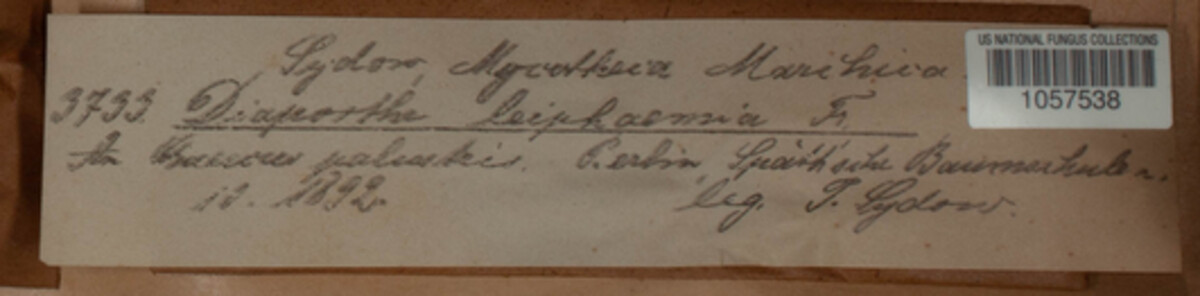 Sydow, Mycotheca Marchica.
3733. Diaporthe leiphaemia Fr.
An Quercus palustris. Berlin, Späth'sche Baumschulen.
12. 1892.
leg. P. Sydow.
US NATIONAL FUNGUS COLLECTIONS
1057538